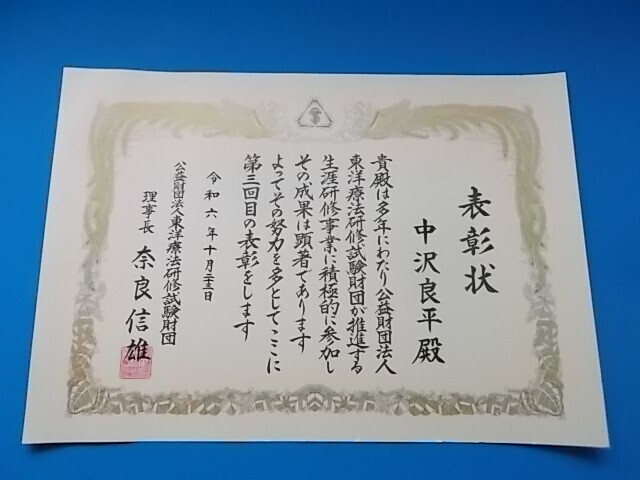 表彰状
中沢良平殿
貴殿は多年にわたり公益財団法人
東洋療法研修試験財団が推進する
生涯研修事業に積極的に参加し
その成果は顕著であります
よってその努力を多としてここに
第三回目の表彰をします
令和六年十月二十三日
公益財団法人東洋療法研修試験財団
理事長 奈良信雄